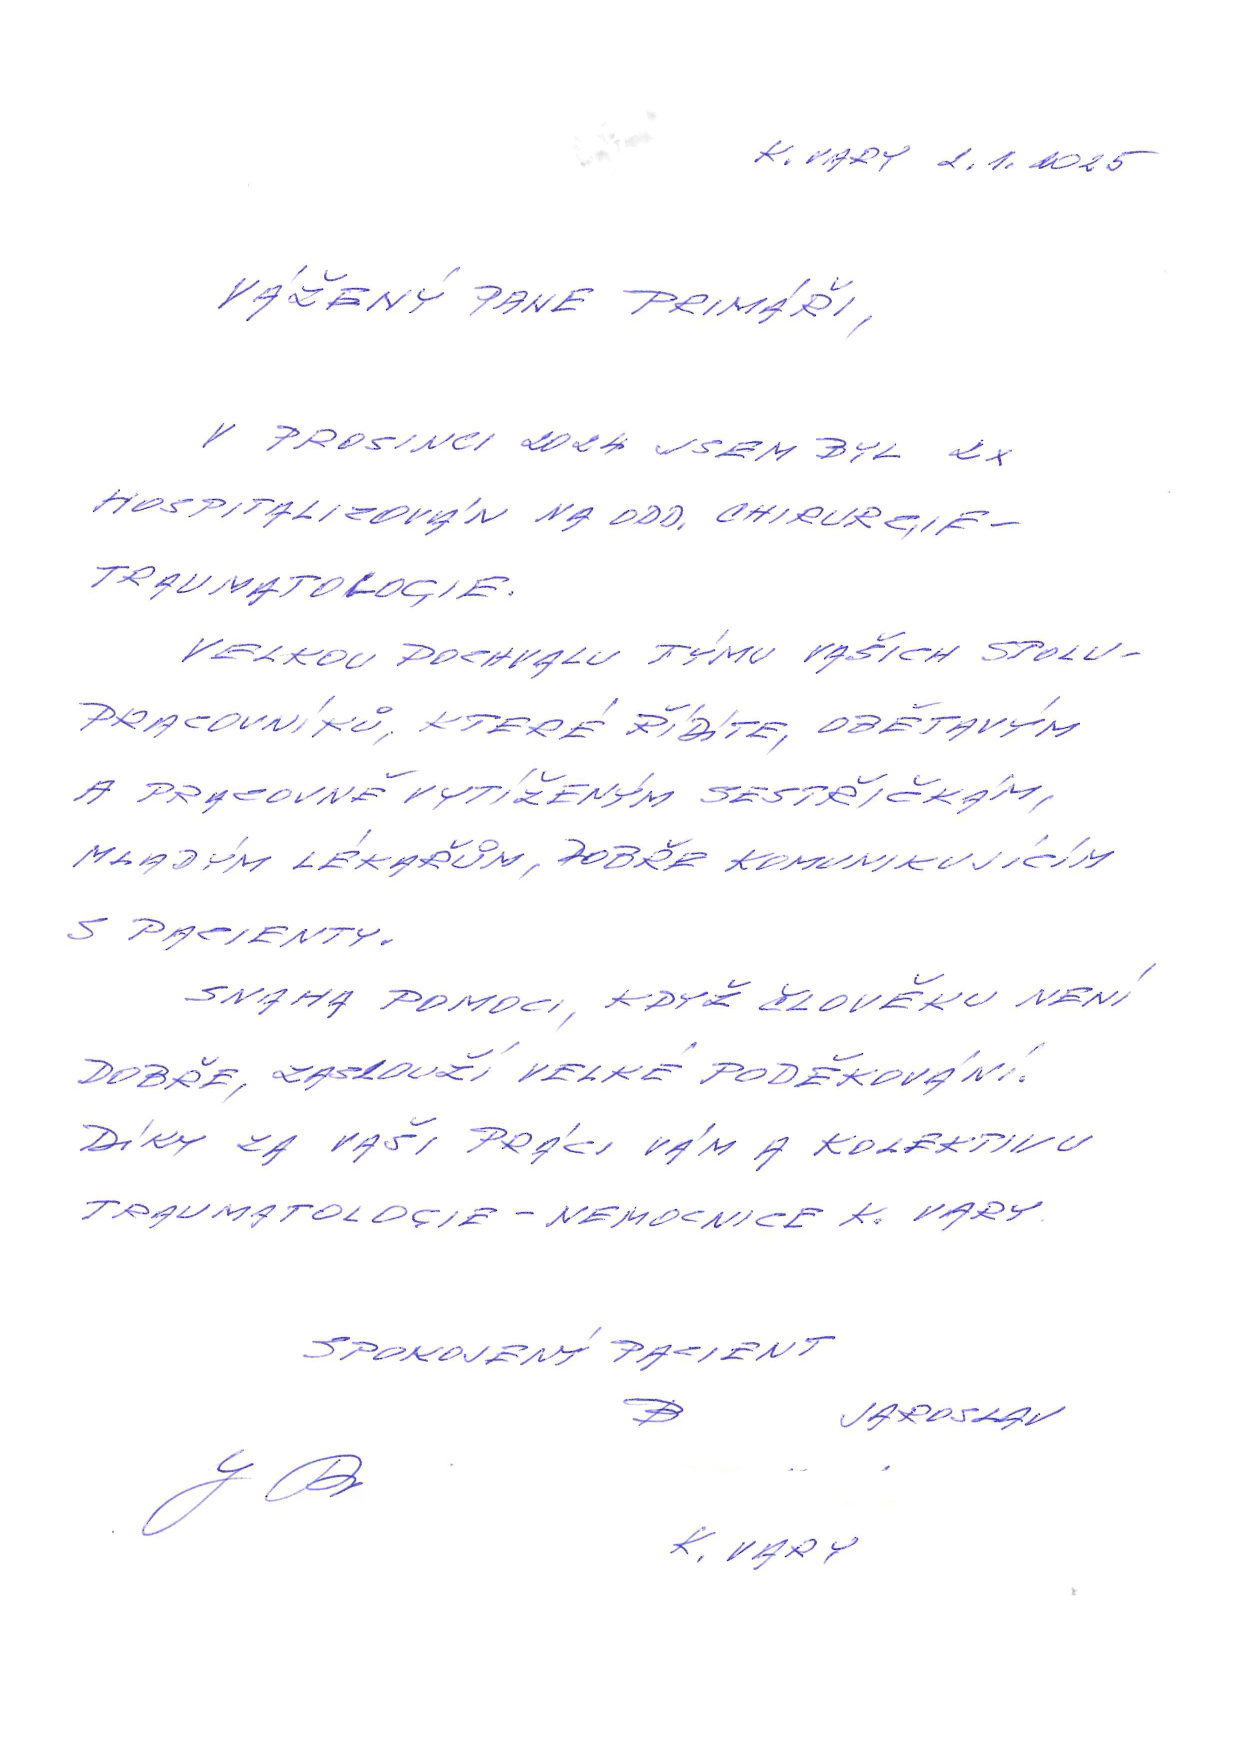 K. VARY 2.1.2025
VÁŽENÝ PANE PRIMÁŘI,
V PROSINCI 2024 JSEM BYL 2x
HOSPITALIZOVÁN NA ODD. CHIRURGIE-
TRAUMATOLOGIE.
VELKOU POCHVALU TÝMU VAŠICH SPOLU-
PRACOVNÍKŮ, KTERÉ ŘÍDÍTE, OBĚTAVÝM
A PRACOVNĚ VYTÍŽENÝM SESTŘIČKÁM,
MLADÝM LÉKAŘŮM, DOBŘE KOMUNIKUJÍCÍM
S PACIENTY.
SNAHA POMOCI, KDYŽ ČLOVĚKU NENÍ
DOBŘE, ZASLOUŽÍ VELKÉ PODĚKOVÁNÍ.
DÍKY ZA VAŠI PRÁCI VÁM A KOLEKTIVU
TRAUMATOLOGIE - NEMOCNICE K. VARY.
SPOKOJENÝ PACIENT
B JAROSLAV
K. VARY